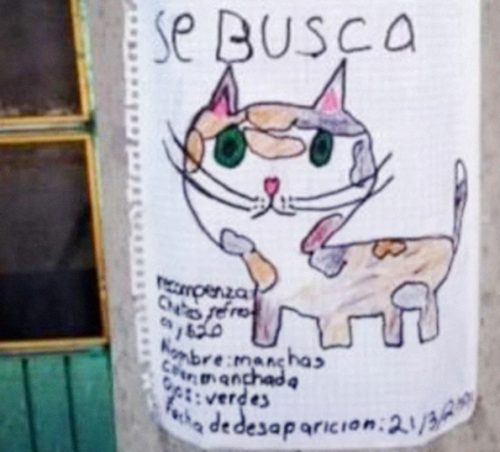 Se BUSCA
recompenza:
Chetos, refres-
cos, $20
Nombre: manchas
Color: manchada
Ojos: verdes
Fecha de desaparicion: 21/3/